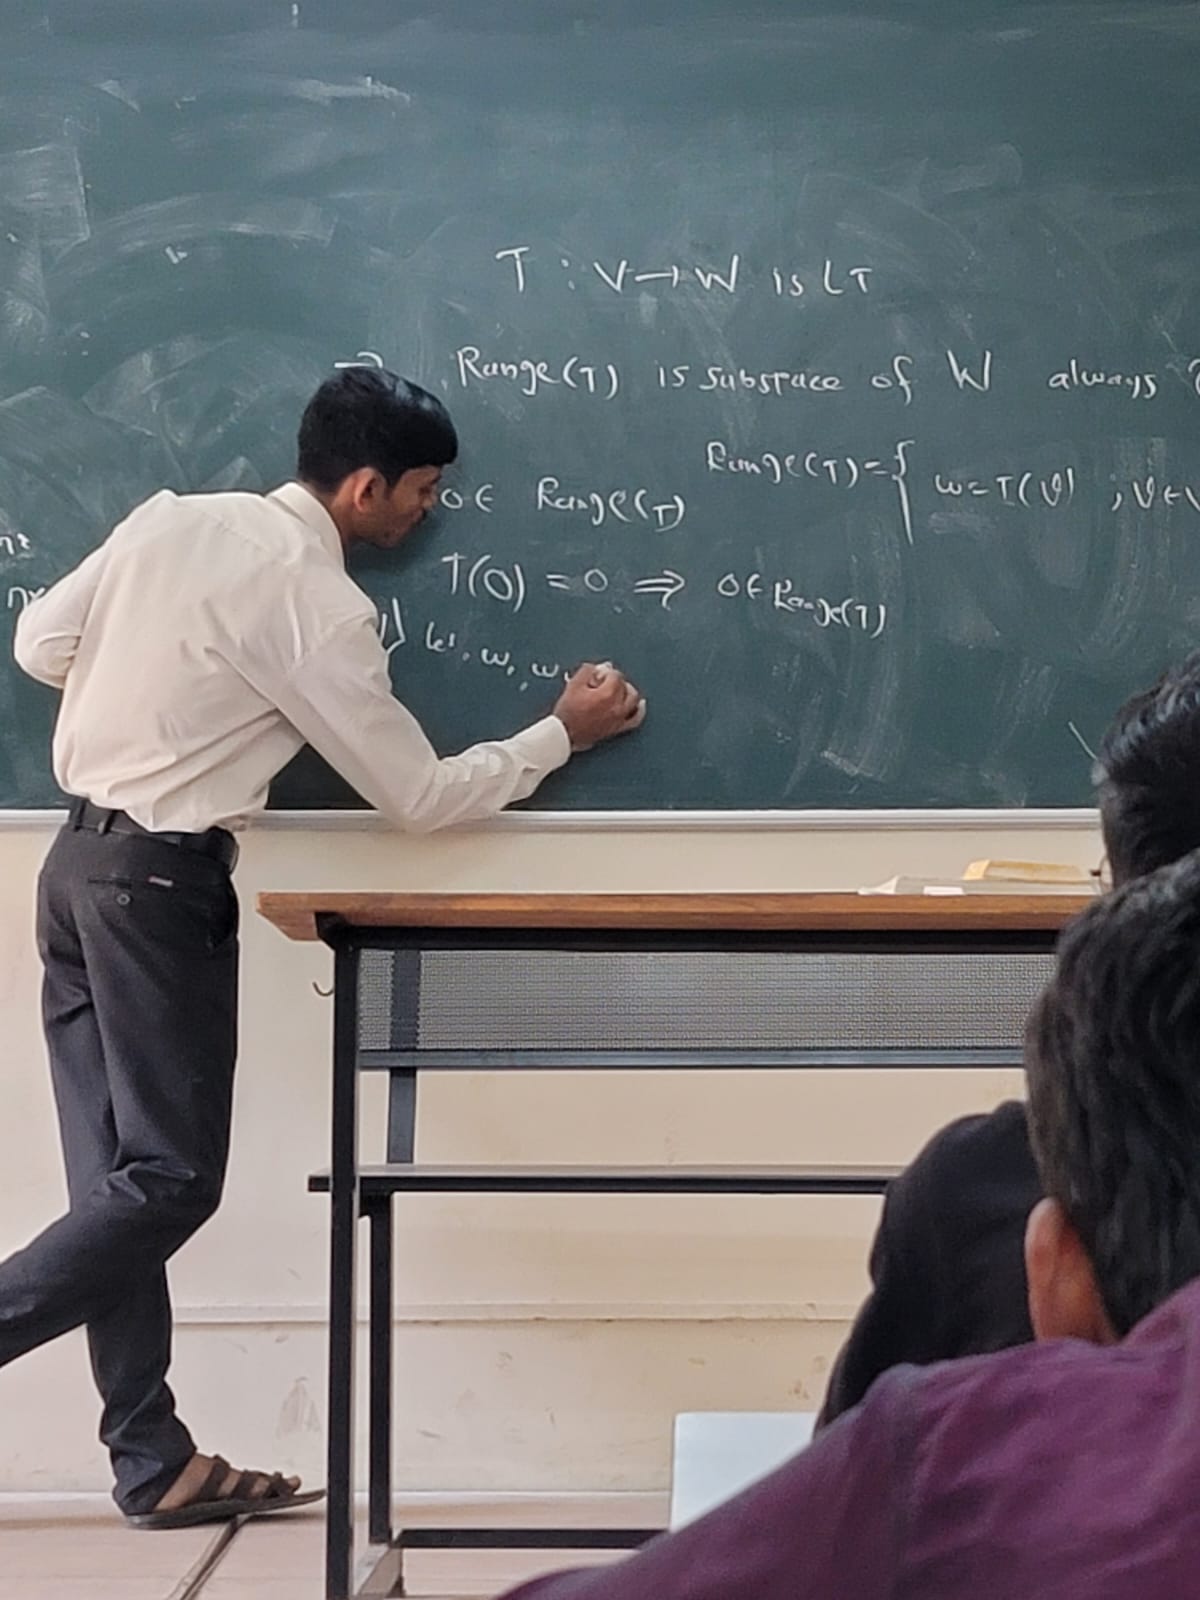 T : V → W is LT
⇒ Range(T) is subspace of W always
Range(T) = { w = T(v) ; v ∈ V
0 ∈ Range(T)
T(0) = 0 ⇒ 0 ∈ Range(T)
let, w, w